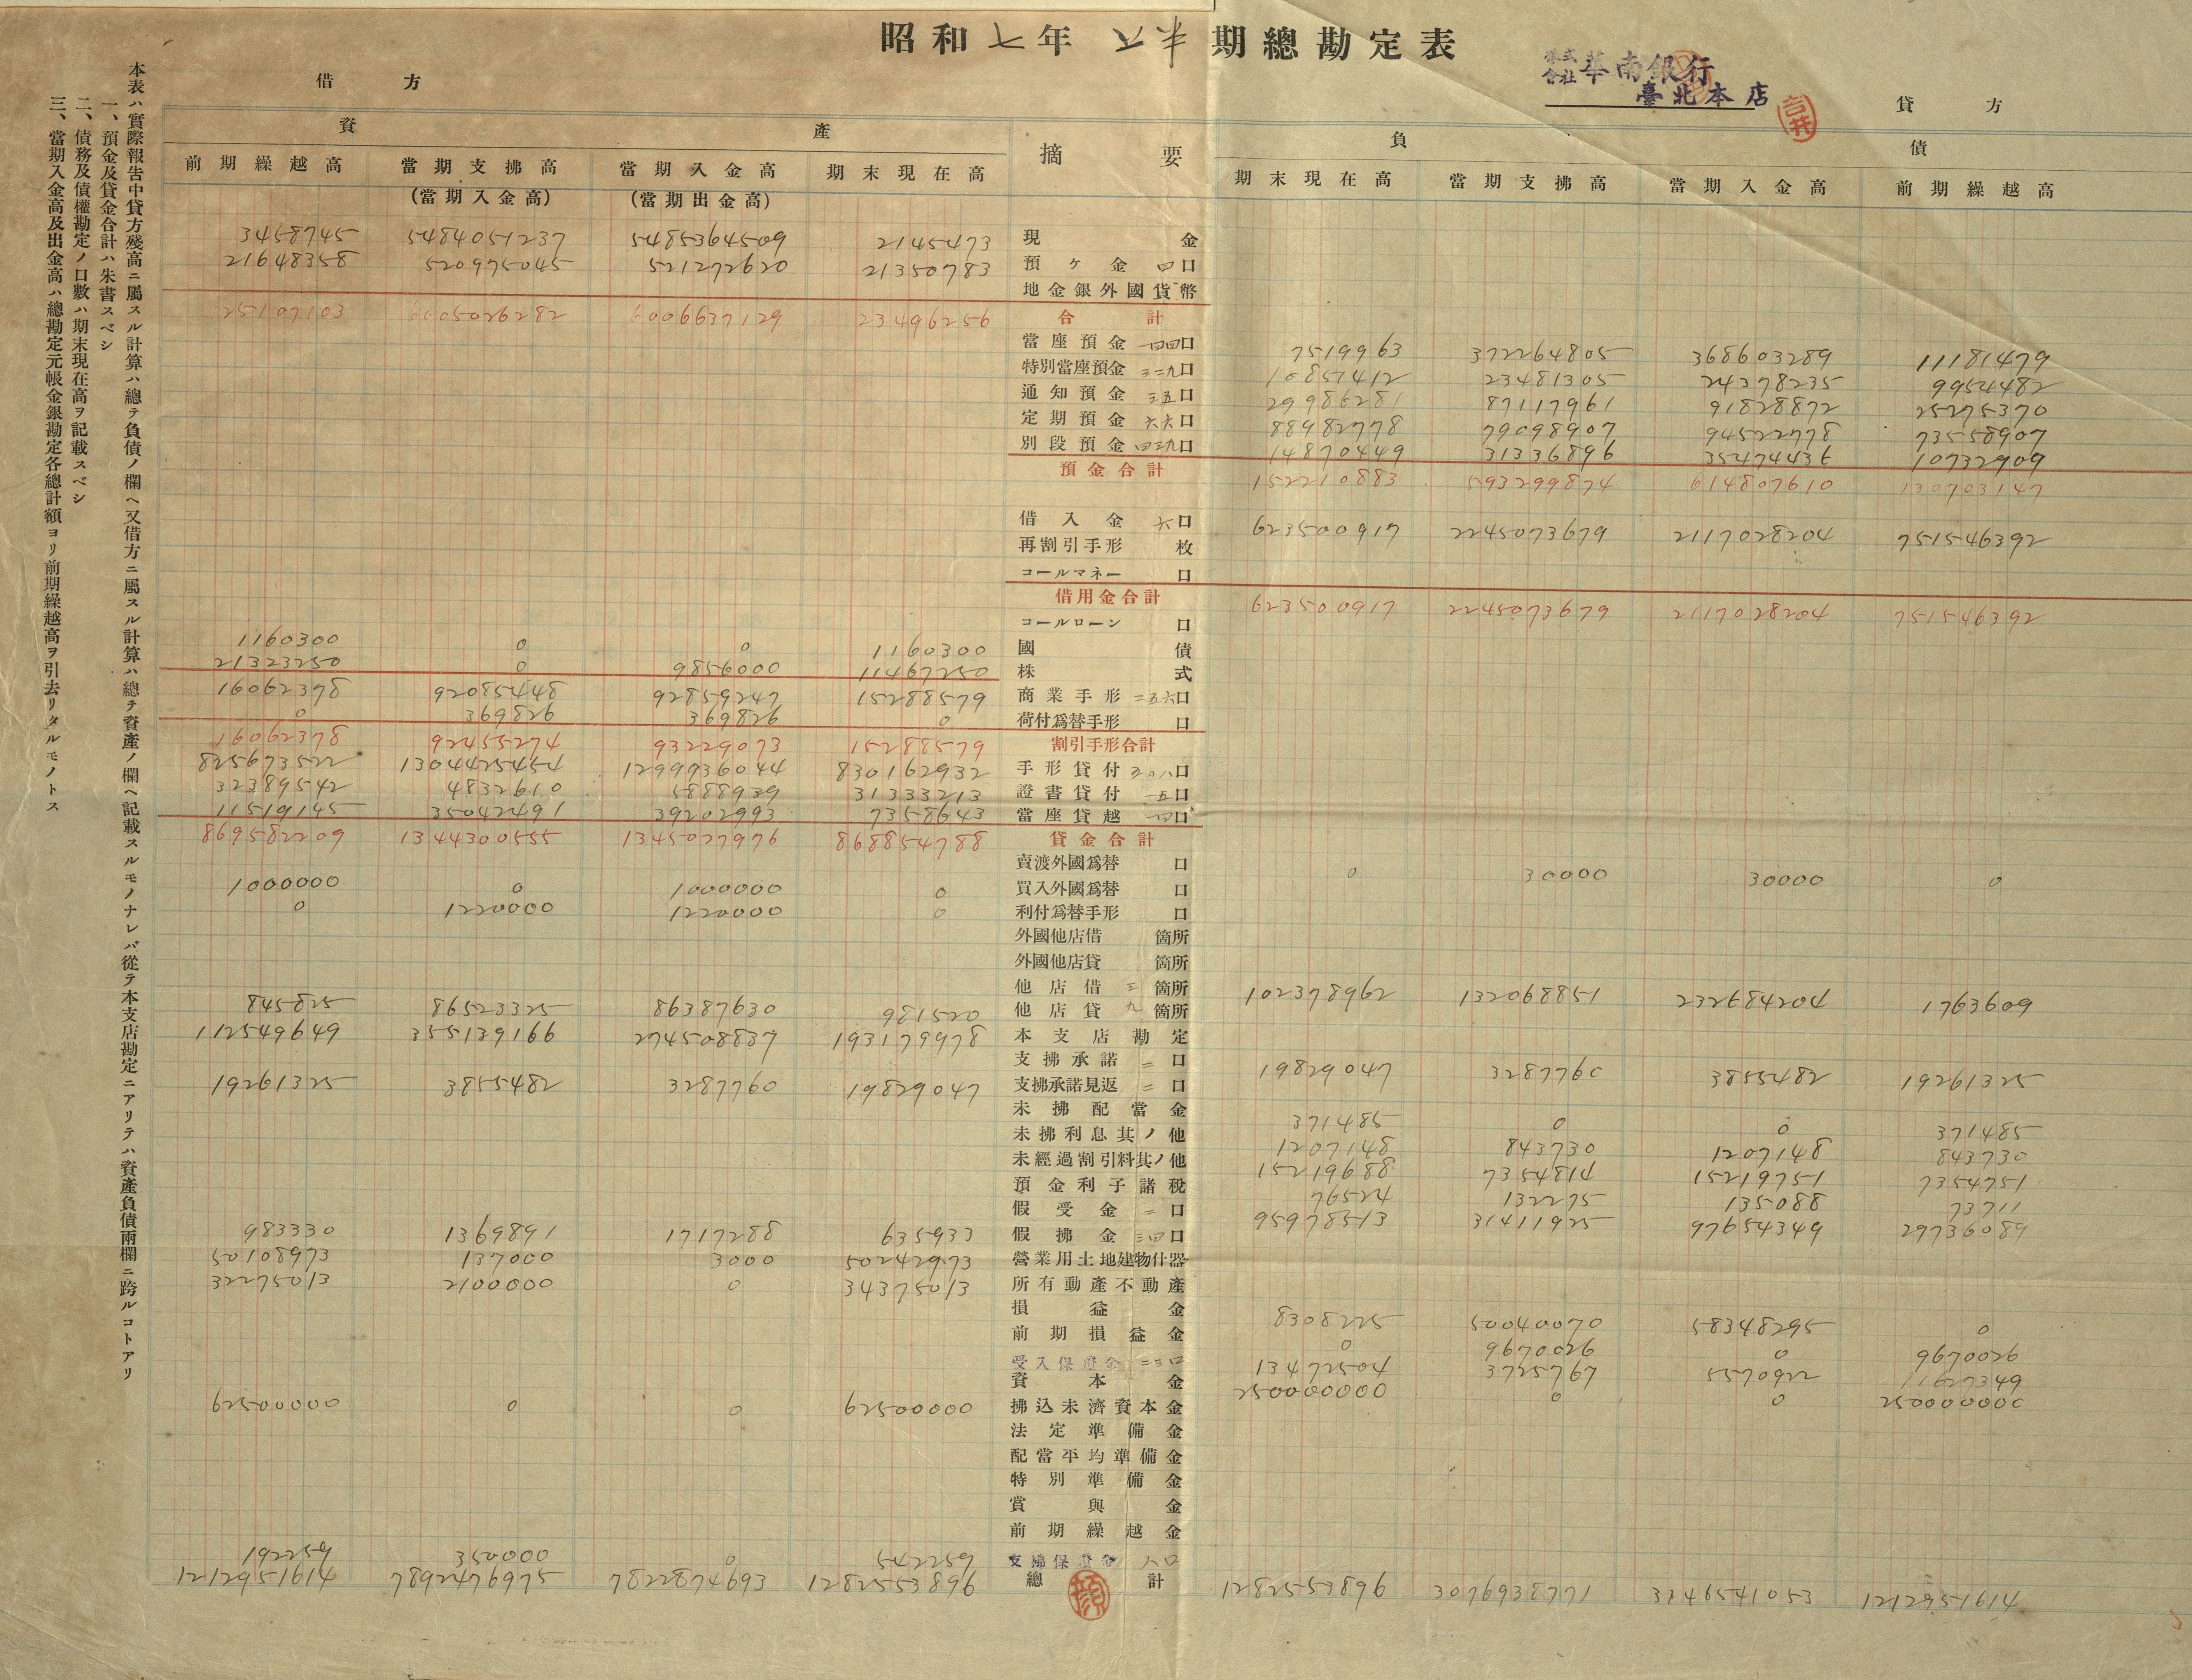 昭和六年 下半期總勘定表
株式會社華南銀行
臺北本店
借方
貸方
資產
摘要
負債
前期繰越高 當期支拂高(當期入金高) 當期入金高(當期出金高) 期末現在高 期末現在高 當期支拂高 當期入金高 前期繰越高
3458745 5484051237 5485364509 2145473 現金
21648358 520975045 521272620 21350783 預ケ金 四口
地金銀外國貨幣
25107103 6005026282 6006637129 23496256 合計
當座預金 一四四口 7519963 372264805 368603289 11181479
特別當座預金 三二九口 10852412 23481305 24378235 9954482
通知預金 三五口 29986281 87117961 91828872 25275370
定期預金 六六口 88982778 79098907 94522778 73558907
別段預金 四三九口 14870449 31336896 35474436 10732909
預金合計 152210883 593299874 614807610 130703147
借入金 六口 623500917 2245073679 2117028204 751546392
再割引手形 枚
コールマネー 口
借用金合計 623500917 2245073679 2117028204 751546392
コールローン 口
1160300 0 0 1160300 國債
21323250 0 9856000 11467250 株式
16062378 92085448 92859247 15288579 商業手形 二五六口
0 369826 369826 0 荷付爲替手形 口
16062378 92455274 93229073 15288579 割引手形合計
825673522 1304425454 1299936044 830162932 手形貸付 三〇八口
32389542 4832610 5888939 31333213 證書貸付 一五口
11519145 35042491 39202993 7358643 當座貸越 一四口
869582209 1344300555 1345027976 868854788 貸金合計
賣渡外國爲替 口 0 30000 30000 0
1000000 0 1000000 0 買入外國爲替 口
0 1220000 1220000 0 利付爲替手形 口
外國他店借 箇所
外國他店貸 箇所
他店借 三箇所 102378962 132068851 232684204 1763609
845825 86523325 86387630 981520 他店貸 九箇所
112549649 355139166 274508837 193179978 本支店勘定
支拂承諾 二口 19829047 3287760 3855482 19261325
19261325 3855482 3287760 19829047 支拂承諾見返 二口
未拂配當金 371485 0 0 371485
未拂利息其ノ他 1207148 843730 1207148 843730
未經過割引料其ノ他 15219688 7354814 15219751 7354751
預金利子諸税 76524 132275 135088 73711
假受金 二口 95978513 31411925 97654349 29736089
983330 1369891 1717288 635933 假拂金 三四口
50108973 137000 3000 50242973 營業用土地建物什器
32275013 2100000 0 34375013 所有動產不動產
損益金 8308225 50040070 58348295 0
前期損益金 0 9670026 0 9670026
受入保證金 二三口 13472504 3725767 5570922 11627349
資本金 250000000 0 0 250000000
62500000 0 0 62500000 拂込未濟資本金
法定準備金
配當平均準備金
特別準備金
賞與金
前期繰越金
192259 350000 0 542259 支拂保證金 八口
1212951614 7892476975 7822874693 1282553896 總計 1282553896 3076938771 3146541053 1212951614
顔
本表ハ實際報告中貸方殘高ニ屬スル計算ハ總テ負債ノ欄ヘ又借方ニ屬スル計算ハ總テ資產ノ欄ヘ記載スルモノナレバ從テ本支店勘定ニアリテハ資產負債兩欄ニ跨ルコトアリ
一、預金及貸金合計ハ朱書スベシ
二、債務及債權勘定ノ口數ハ期末現在高ヲ記載スベシ
三、當期入金高及出金高ハ總勘定元帳金銀勘定各總計額ヨリ前期繰越高ヲ引去リタルモノトス